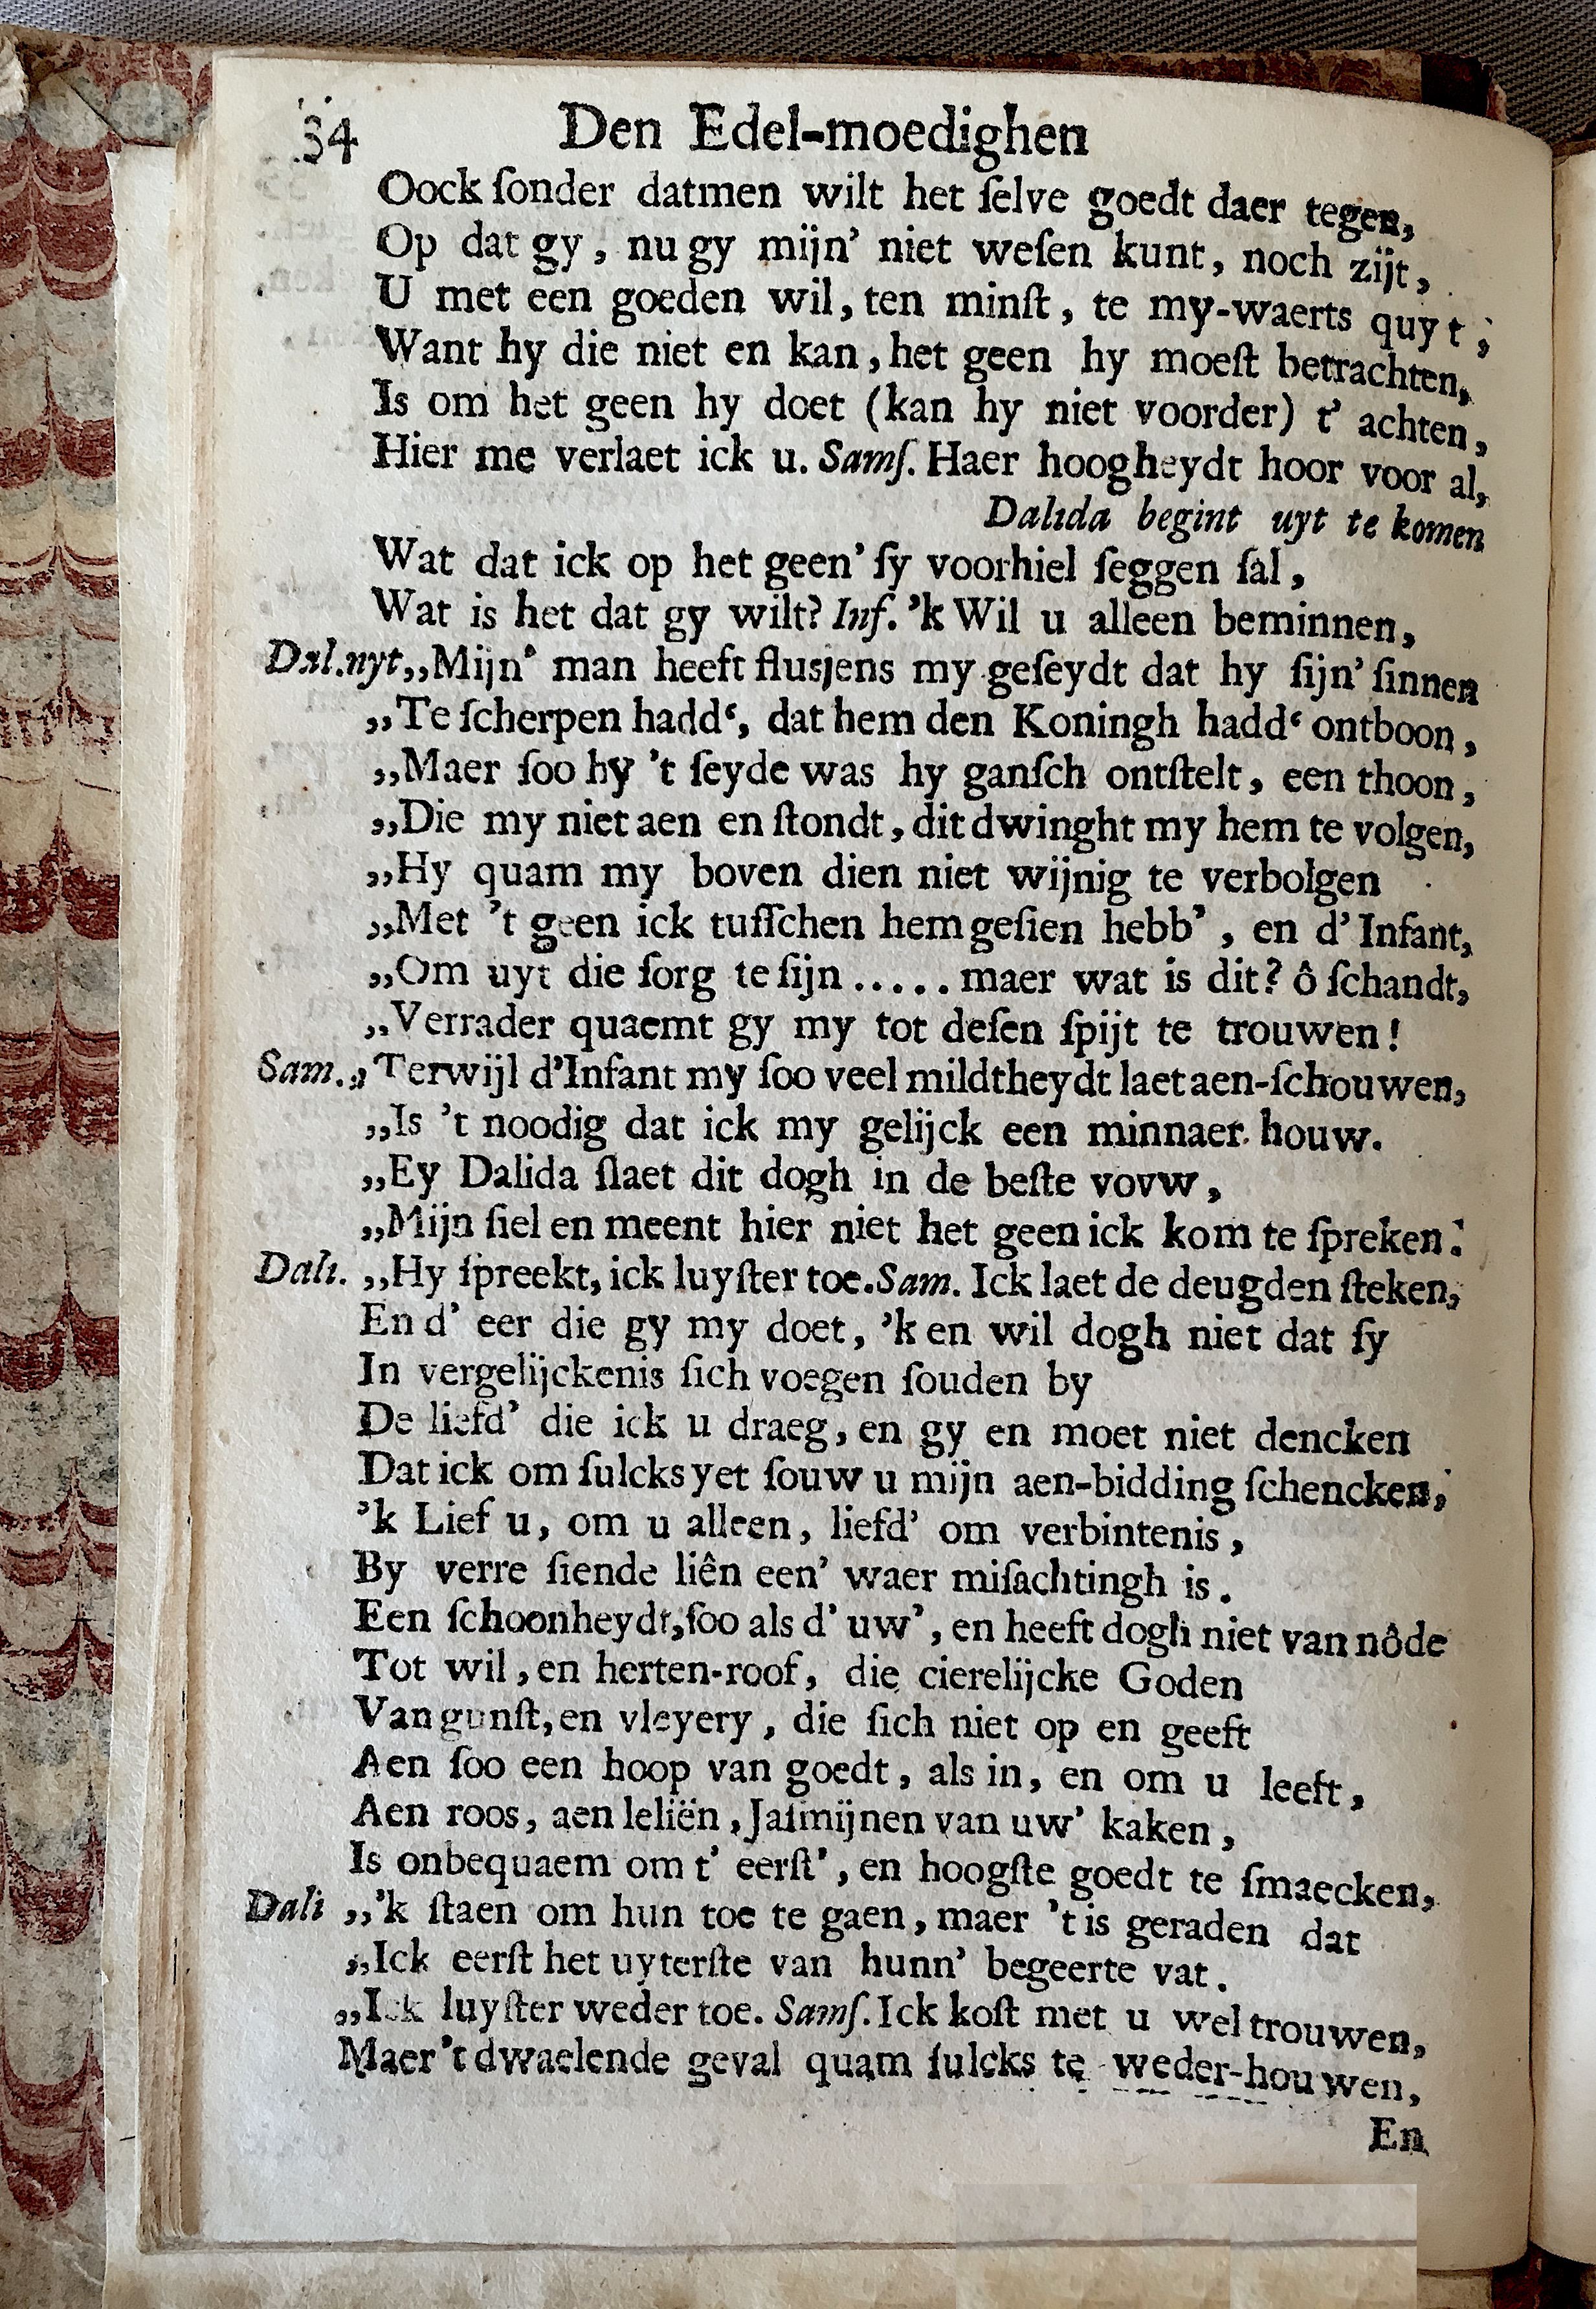 34 Den Edel-moedighen
Oock ſonder datmen wilt het ſelve goedt daer tegen,
Op dat gy, nu gy mijn’ niet weſen kunt, noch zijt,
U met een goeden wil, ten minſt, te my-waerts quyt;
Want hy die niet en kan, het geen hy moeſt betrachten,
Is om het geen hy doet (kan hy niet voorder) t’ achten,
Hier me verlaet ick u. Samſ. Haer hoogheydt hoor voor al,
Dalida begint uyt te komen
Wat dat ick op het geen’ ſy voorhiel ſeggen ſal,
Wat is het dat gy wilt? Inf. ’k Wil u alleen beminnen,
Dal. uyt,,Mijn’ man heeft fluſjens my geſeydt dat hy ſijn’ ſinnen
,,Te ſcherpen hadd‘, dat hem den Koningh hadd‘ ontboon,
,,Maer ſoo hy ’t ſeyde was hy ganſch ontſtelt, een thoon,
,,Die my niet aen en ſtondt, dit dwinght my hem te volgen,
,,Hy quam my boven dien niet wijnig te verbolgen
,,Met ’t geen ick tuſſchen hem geſien hebb’, en d’ Infant,
,,Om uyt die ſorg te ſijn ..... maer wat is dit? ô ſchandt,
,,Verrader quaemt gy my tot deſen ſpijt te trouwen!
Sam.,,Terwijl d’Infant my ſoo veel mildtheydt laet aen-ſchouwen,
,,Is ’t noodig dat ick my gelijck een minnaer houw.
,,Ey Dalida ſlaet dit dogh in de beſte vovw,
,,Mijn ſiel en meent hier niet het geen ick kom te ſpreken:
Dali. ,,Hy ſpreekt, ick luyſter toe. Sam. Ick laet de deugden ſteken,
En d’ eer die gy my doet, ’k en wil dogh niet dat ſy
In vergelijckenis ſich voegen ſouden by
De liefd’ die ick u draeg, en gy en moet niet dencken
Dat ick om ſulcks yet ſouw u mijn aen-bidding ſchencken,
’k Lief u, om u alleen, liefd’ om verbintenis,
By verre ſiende liên een’ waer miſachtingh is.
Een ſchoonheydt, ſoo als d’ uw’, en heeft dogh niet van nôde
Tot wil, en herten-roof, die cierelijcke Goden
Van gunſt, en vleyery, die ſich niet op en geeft
Aen ſoo een hoop van goedt, als in, en om u leeft,
Aen roos, aen leliën, Jaſmijnen van uw’ kaken,
Is onbequaem om t’ eerſt’, en hoogſte goedt te ſmaecken,
Dali ,,’k ſtaen om hun toe te gaen, maer ’t is geraden dat
,,Ick eerſt het uyterſte van hunn’ begeerte vat.
,,Ick luyſter weder toe. Samſ. Ick koſt met u wel trouwen,
Maer ’t dwaelende geval quam ſulcks te weder-houwen,
En